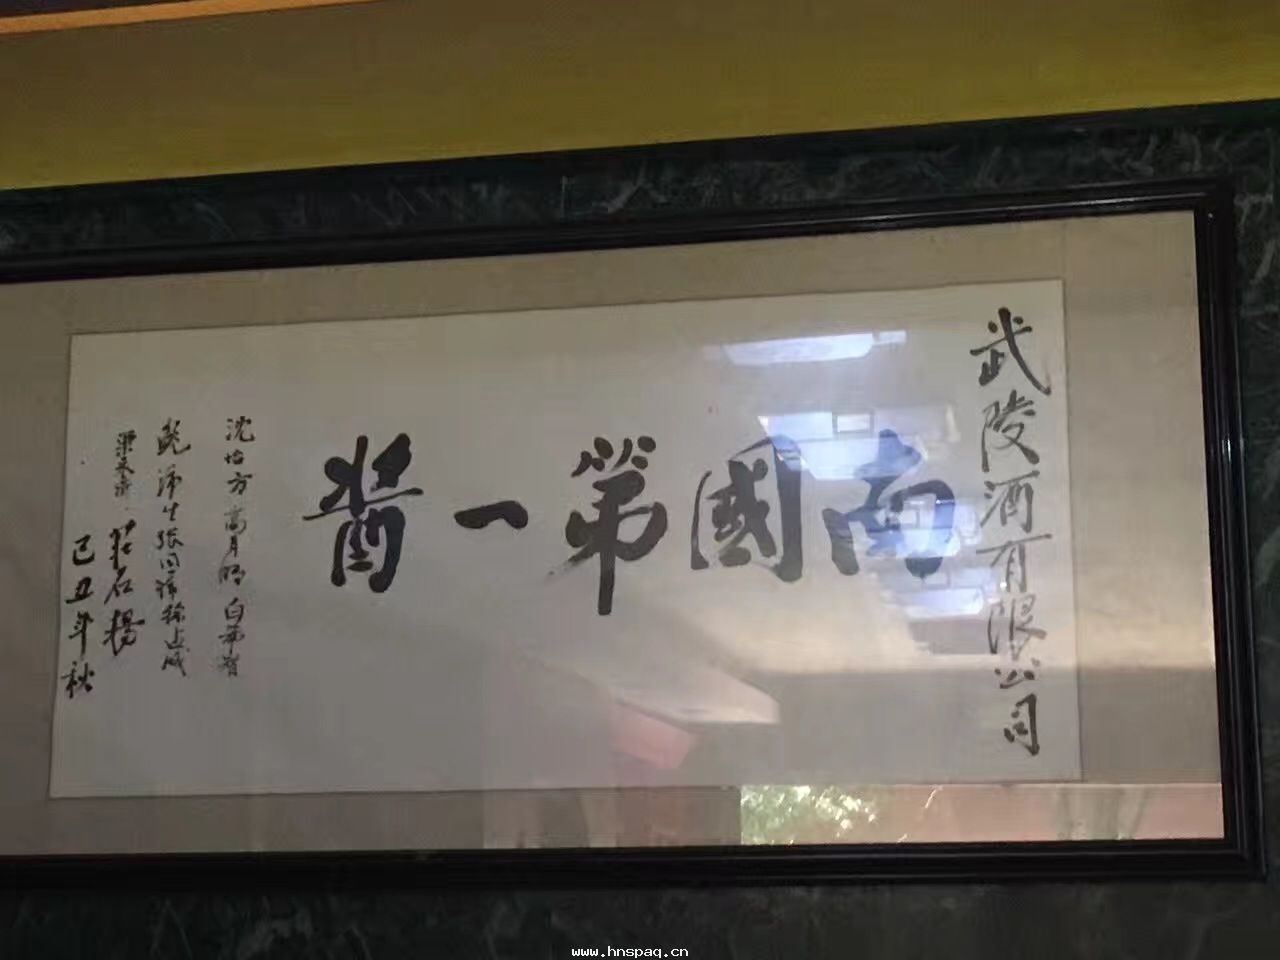 武陵酒有限公司
南國第一酱
沈怡方高月明白希智
张国强徐占成
梁邦昌
己丑年秋
www.hnspaq.cn